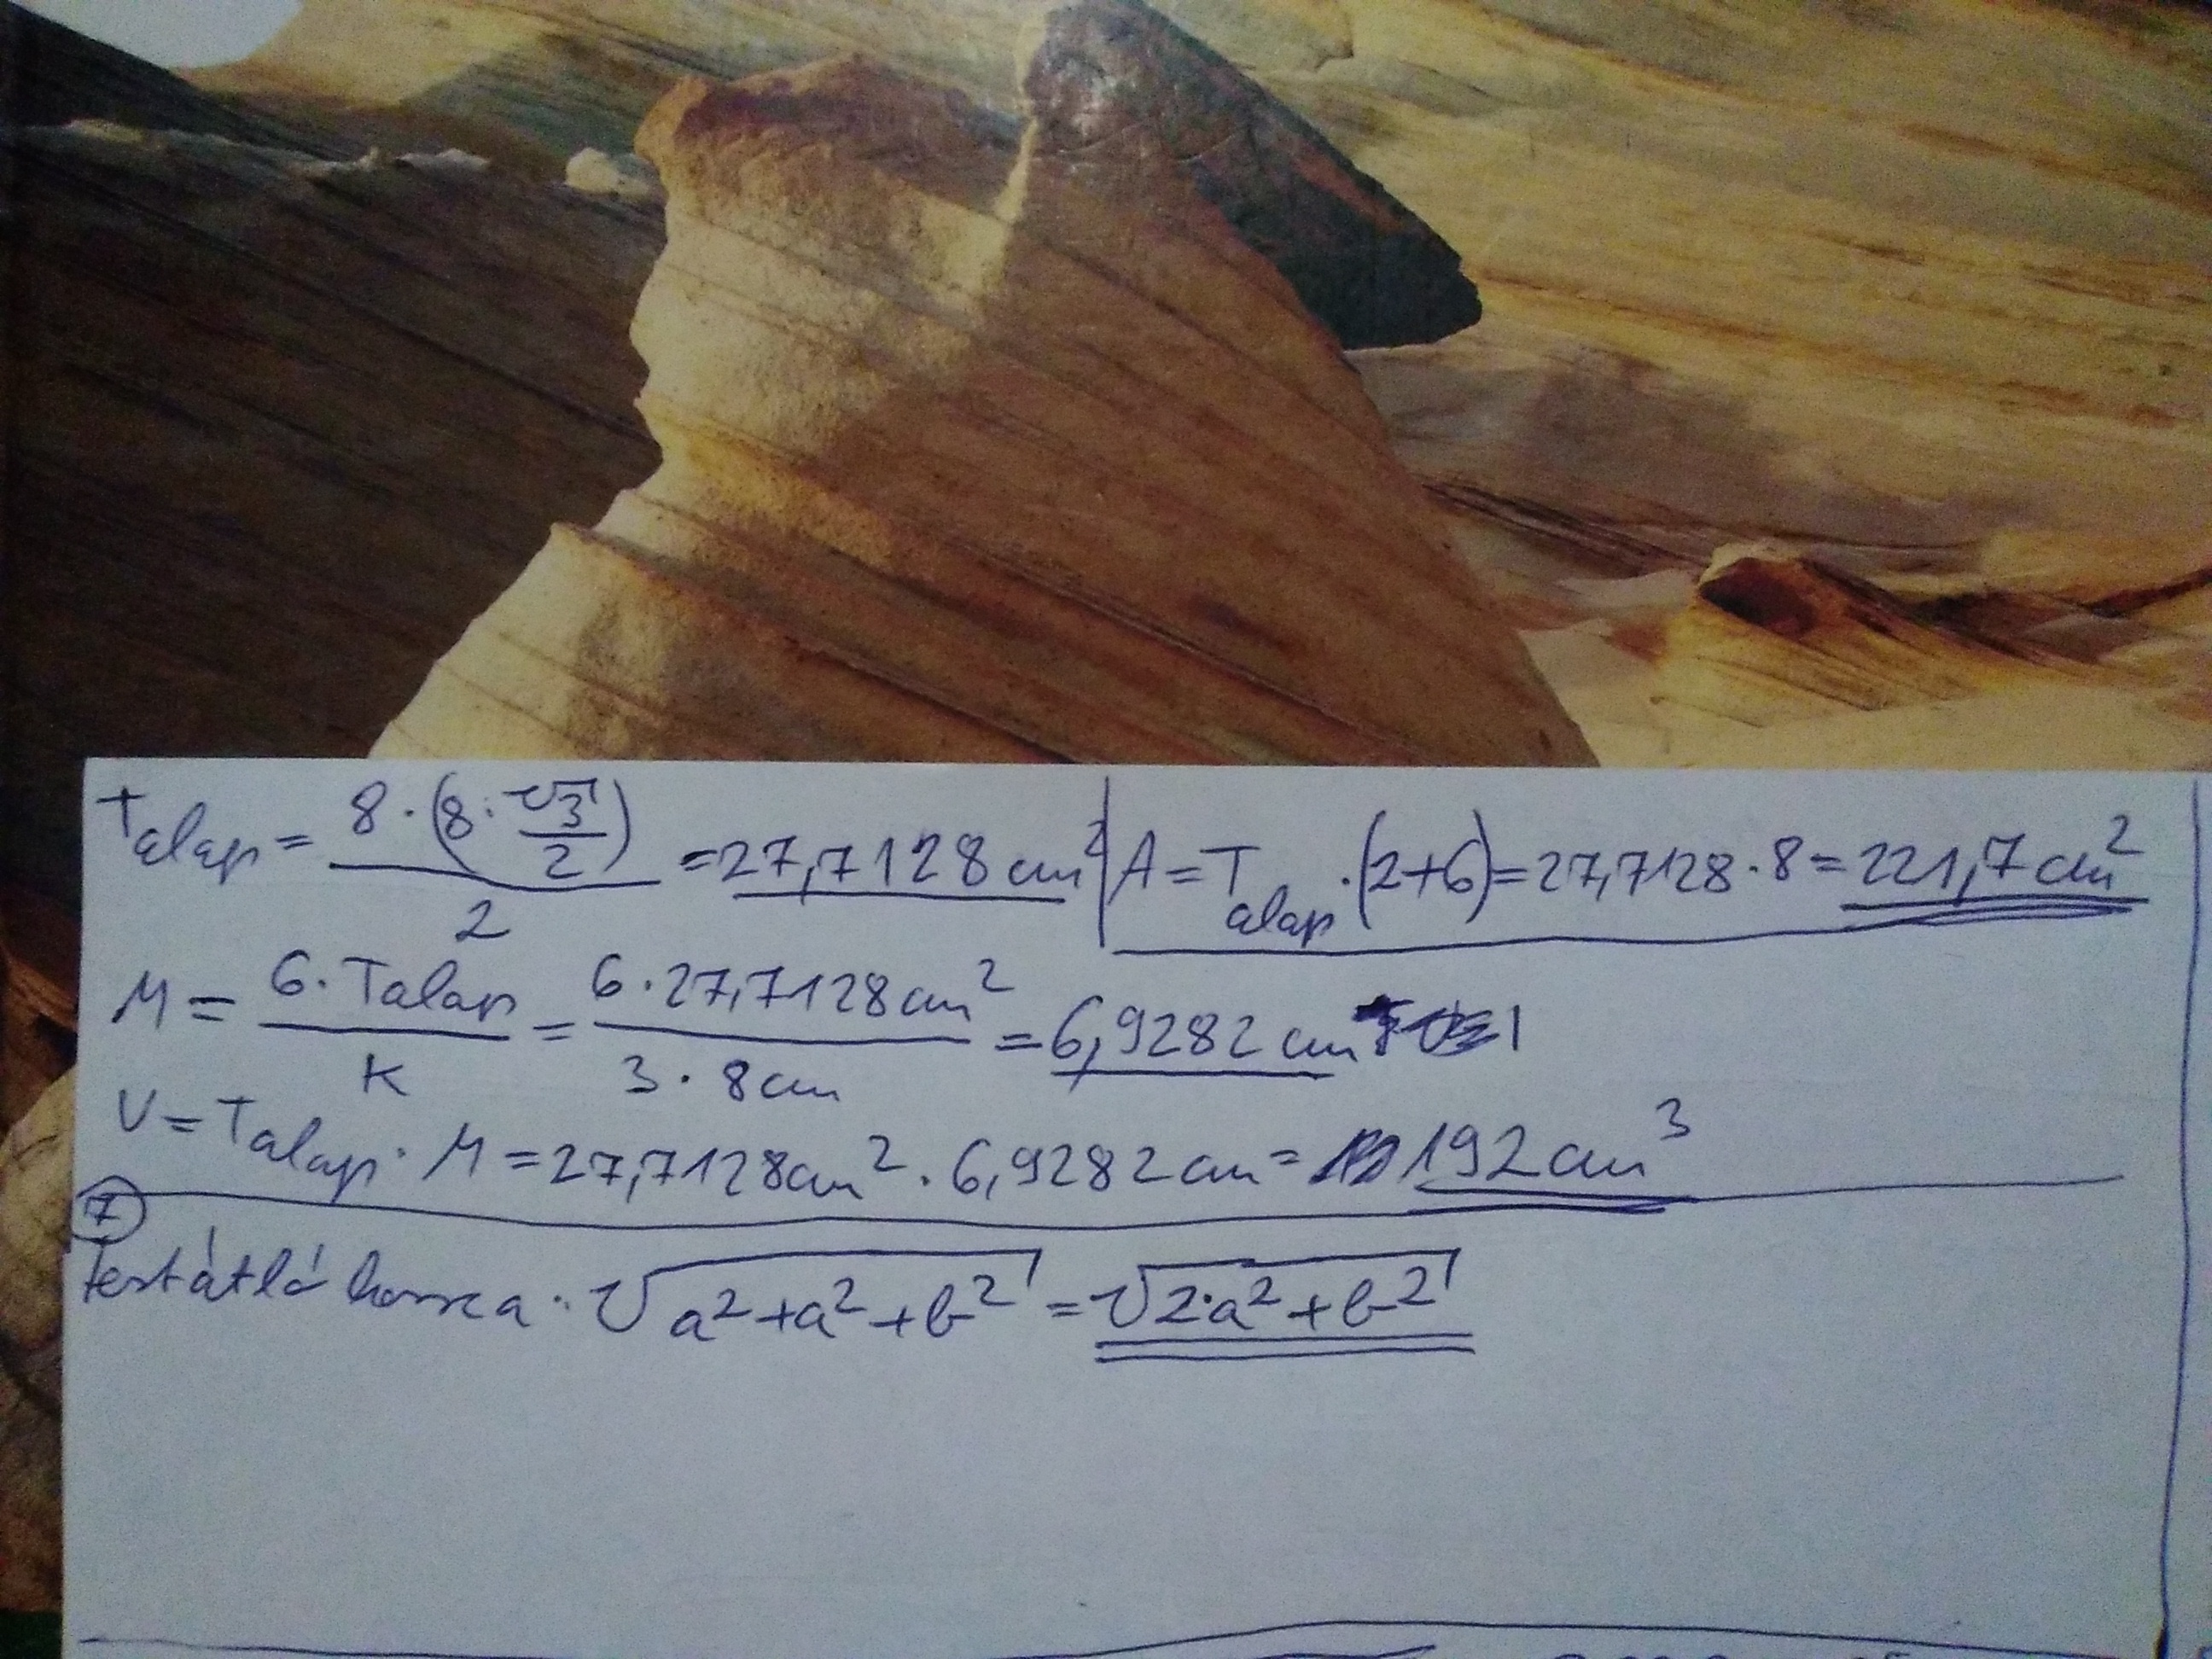 Talap = 8·(8·√3/2)/2 = 27,7128 cm² | A = Talap·(2+6) = 27,7128·8 = 221,7 cm²
M = 6·Talap/K = 6·27,7128 cm²/3·8 cm = 6,9282 cm
V = Talap·M = 27,7128 cm²·6,9282 cm = 192 cm³
7
testátló hossza: √a²+a²+b² = √2·a²+b²